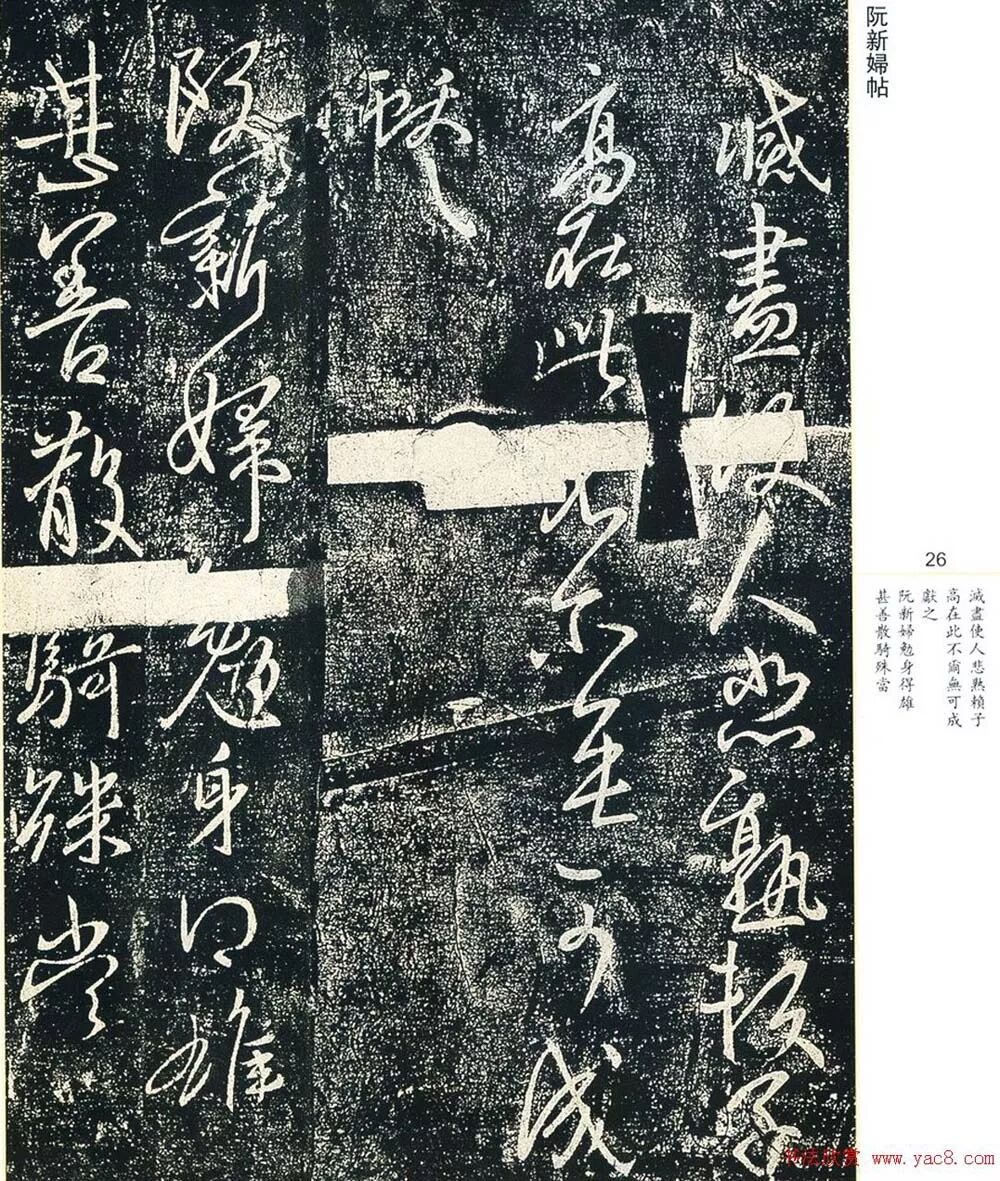 阮新婦帖
減盡使人悲熟賴子
高在此不爾無可成
獻之
阮新婦勉身得雄
甚善散騎殊當
26
減盡使人悲熟賴子
高在此不爾無可成
獻之
阮新婦勉身得雄
甚善散騎殊當
书法欣赏 www.yac8.com